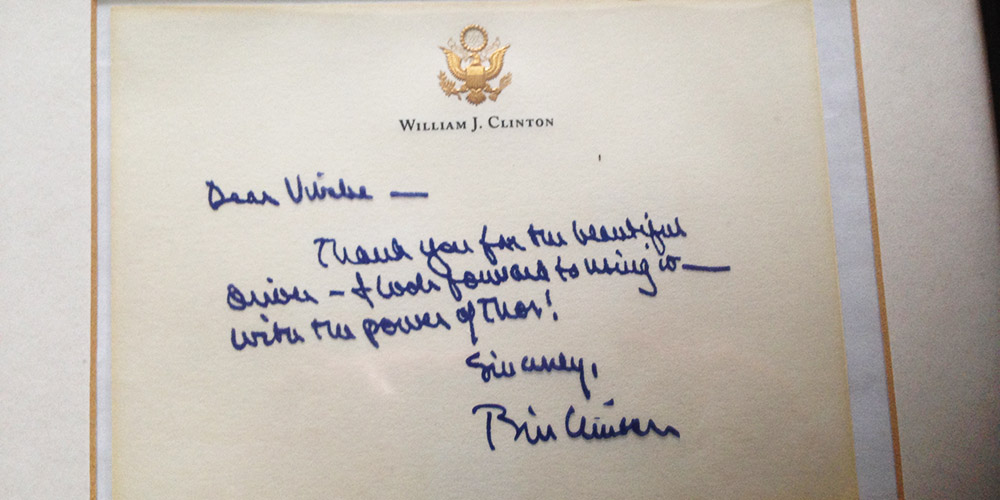 WILLIAM J. CLINTON
Dear Vibeke —
Thank you for the beautiful
driver – I look forward to using it —
with the power of Thor!
Sincerely,
Bill Clinton